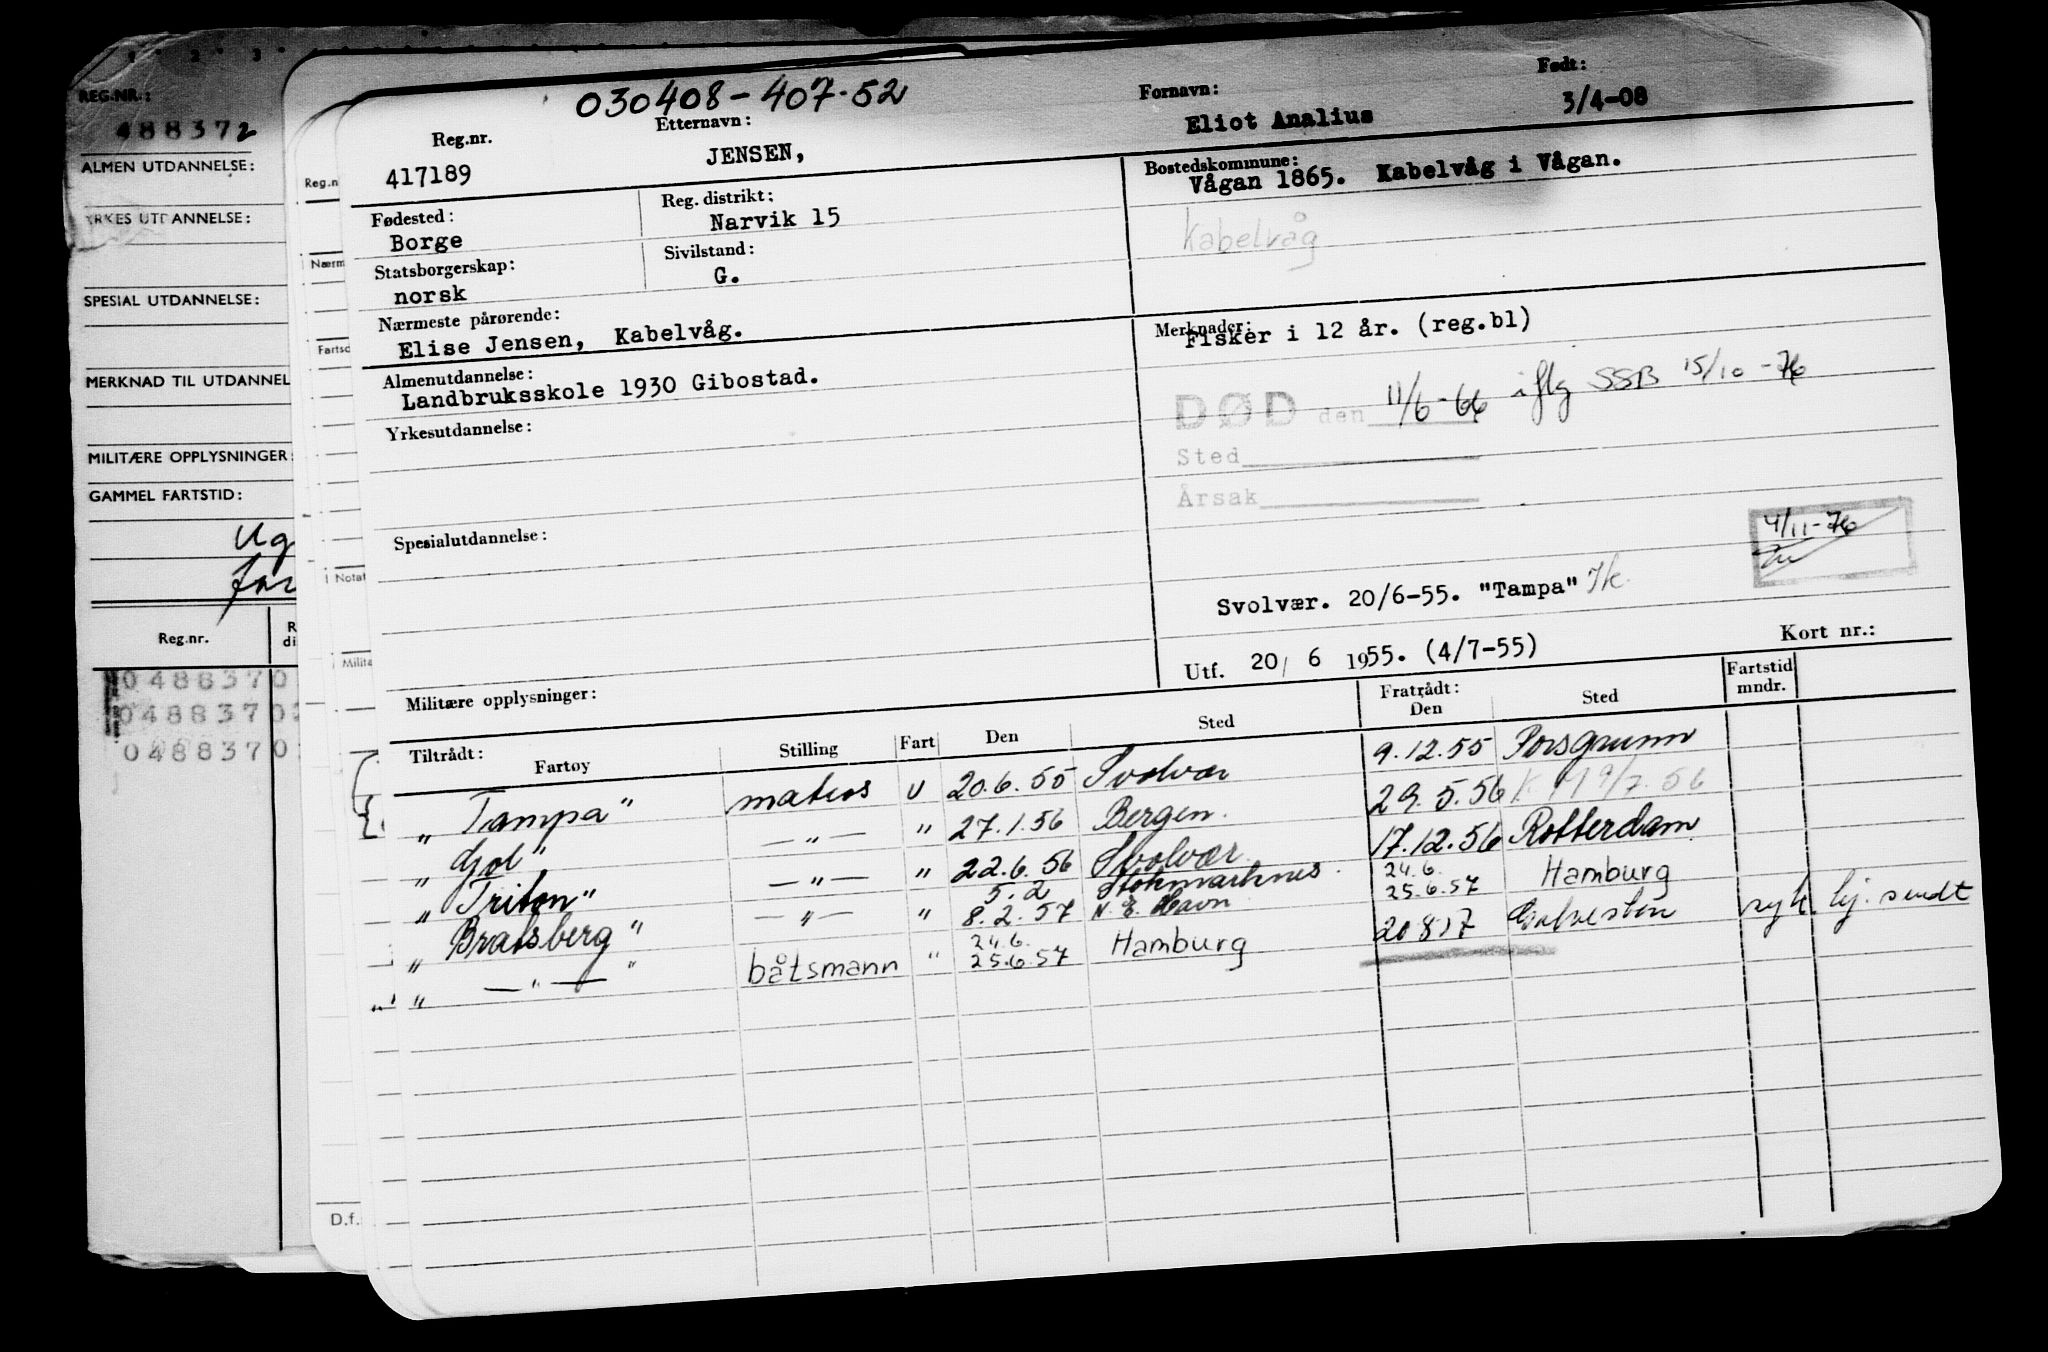 REG.NR.:
488372
ALMEN UTDANNELSE:
YRKES UTDANNELSE:
SPESIAL UTDANNELSE:
MERKNAD TIL UTDANNEL
MILITÆRE OPPLYSNINGER:
GAMMEL FARTSTID:
Reg.nr.
0488370
0488370
0488370
Reg.n
Nærm
Fartsc
Notat
Milita
D.f.
030408-407-52
Reg.nr. Etternavn: Fornavn: Født:
417189 JENSEN, Eliot Analius 3/4-08
Fødested: Reg. distrikt: Bostedskommune:
Borge Narvik 15 Vågan 1865. Kabelvåg i Vågan.
Statsborgerskap: Sivilstand: Kabelvåg
norsk G.
Nærmeste pårørende: Merknader:
Elise Jensen, Kabelvåg. Fisker i 12 år. (reg.bl)
Almenutdannelse:
Landbruksskole 1930 Gibostad.
DØD den 11/6-66 iflg SSB 15/10-76
Yrkesutdannelse:
Sted
Årsak
Spesialutdannelse:
4/11-76
Svolvær. 20/6-55. "Tampa"
Utf. 20/ 6 1955. (4/7-55) Kort nr.:
Militære opplysninger:
Tiltrådt: Fartøy Stilling Fart Den Sted Fratrådt: Den Sted Fartstid mndr.
"Tampa" matros U 20.6.55 Svolvær 9.12.55 Porsgrunn
"Gol" —"— " 27.1.56 Bergen. 29.5.56
"Triton" —"— " 22.6.56 Svolvær 17.12.56 Rotterdam
"Bratsberg" —"— " 5.2 8.2.57 Stokmarknes. N.E. Havn 24.6. 25.6.57 Hamburg
" —"— " båtsmann " 24.6. 25.6.57 Hamburg 20857 Galveston syk. hj. sendt